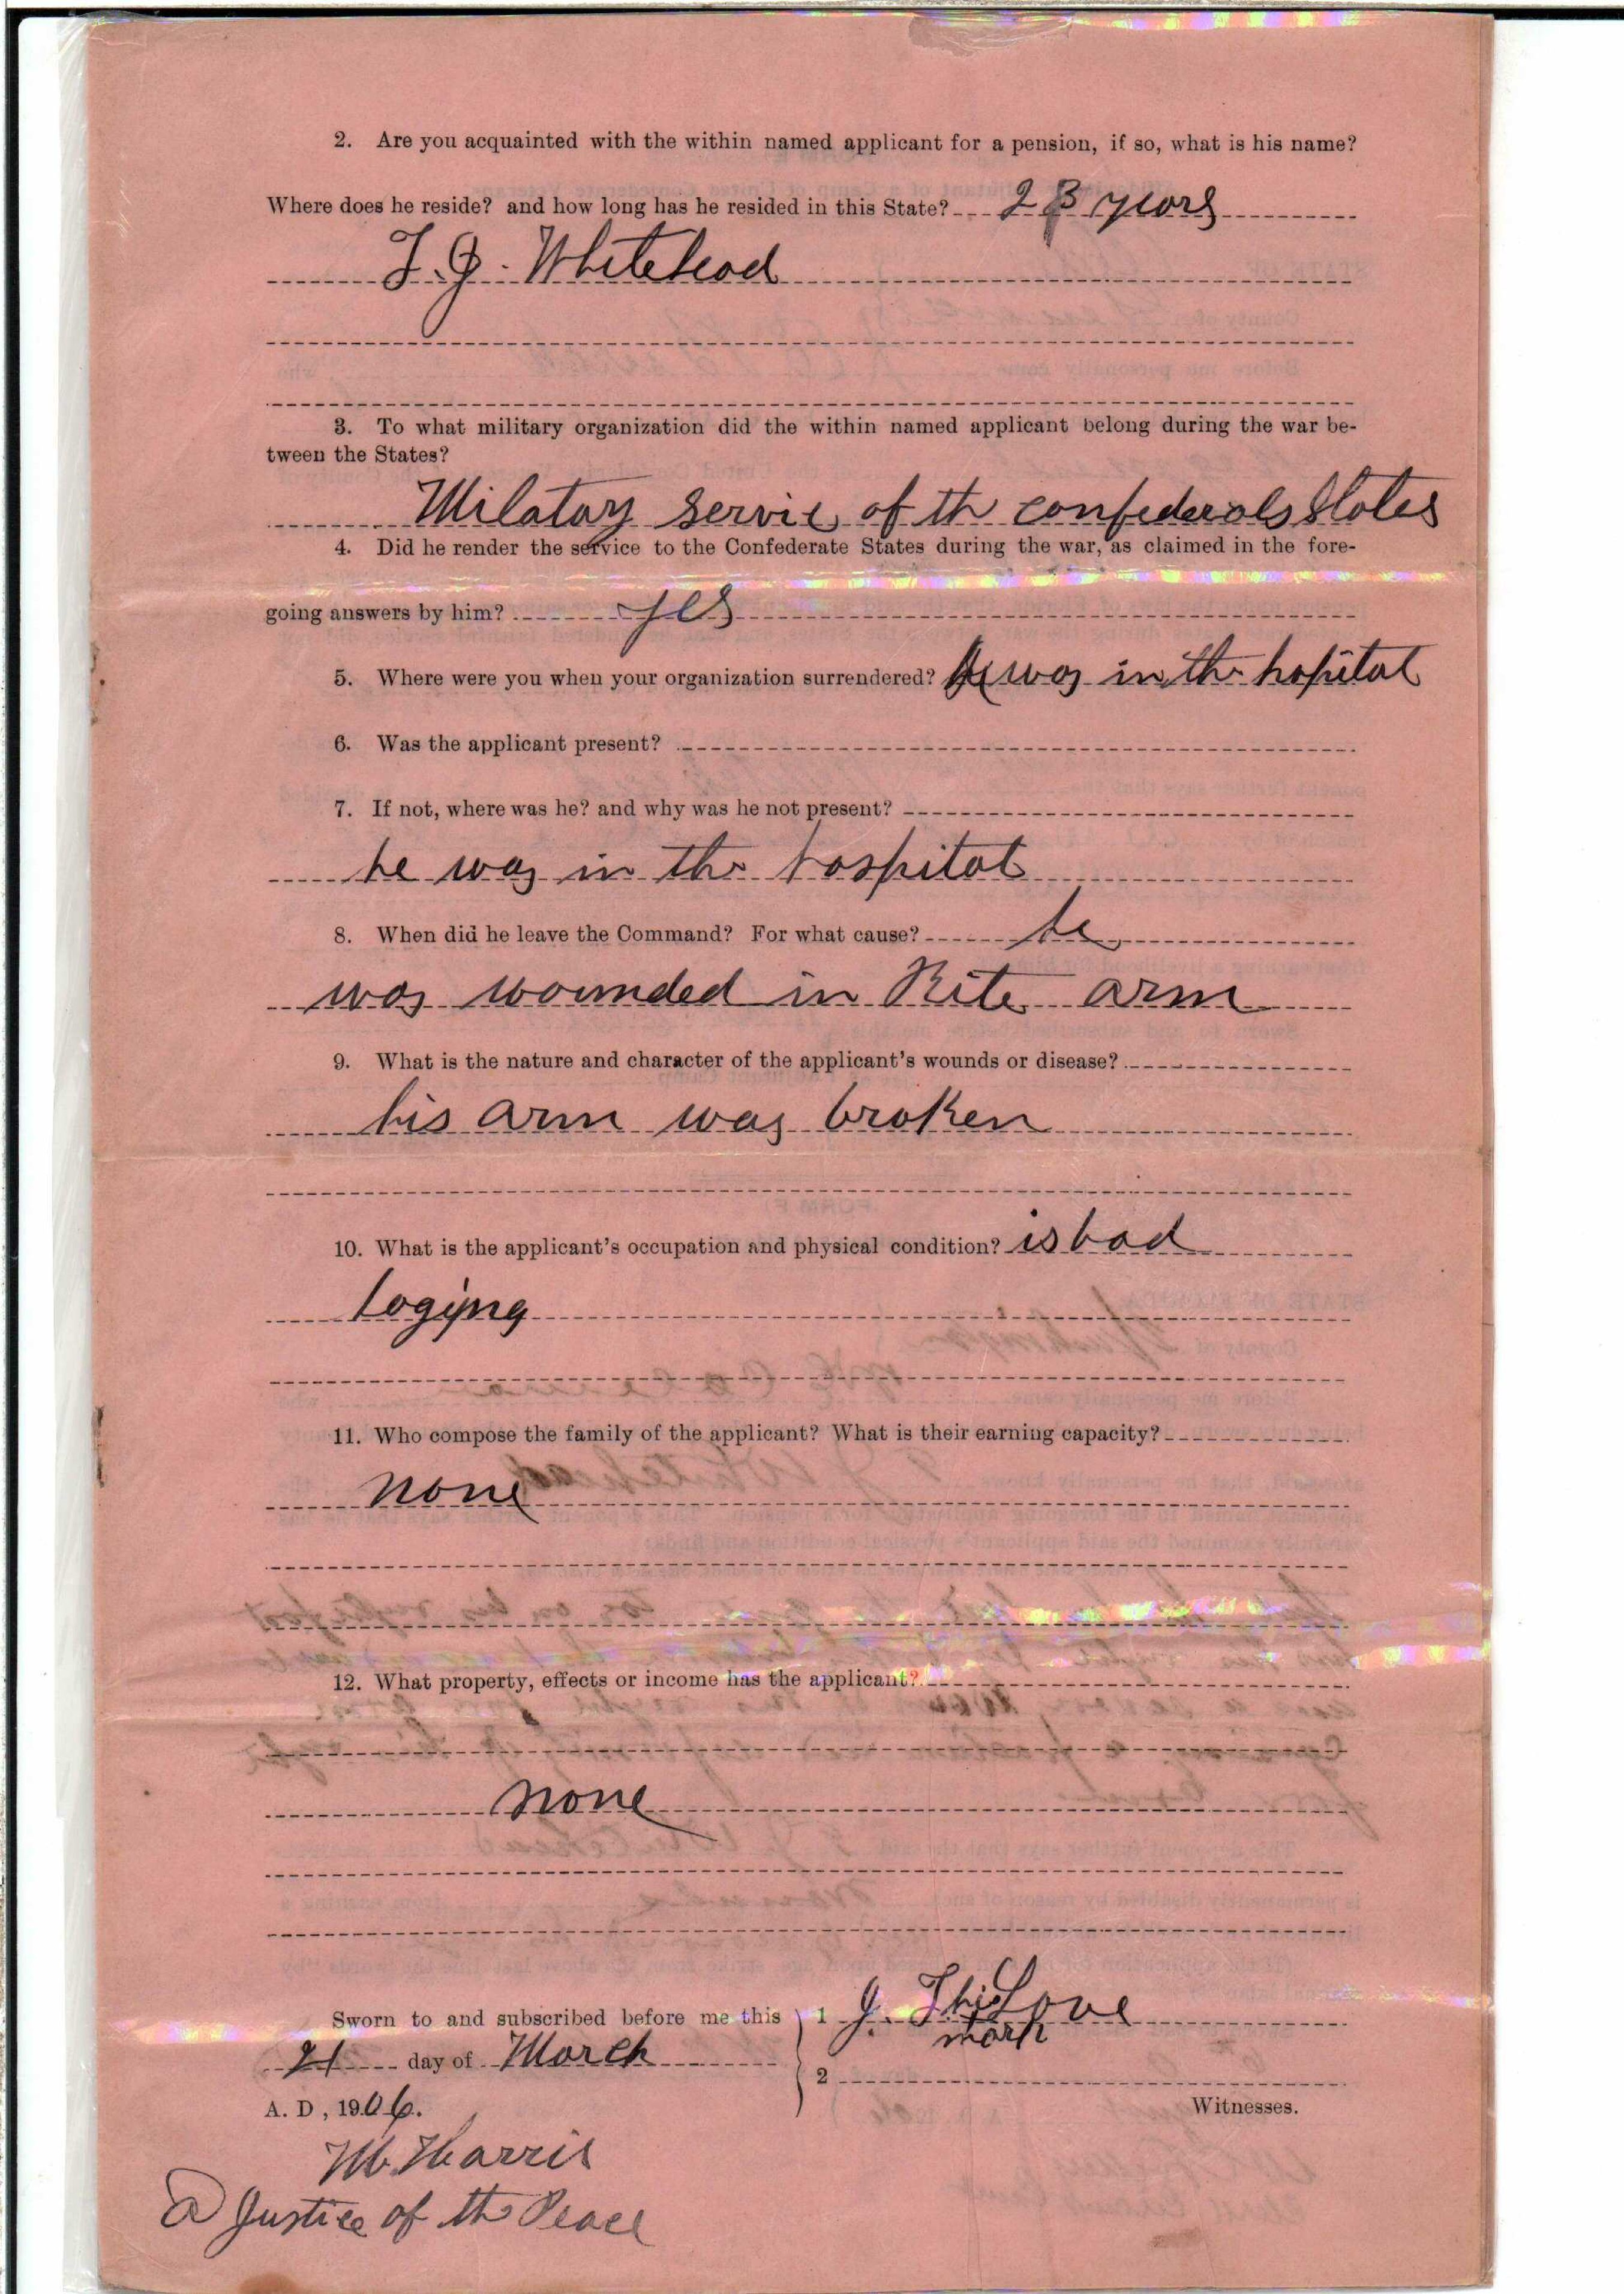 2. Are you acquainted with the within named applicant for a pension, if so, what is his name?
Where does he reside? and how long has he resided in this State? 23 years
T. J. Whitehead
3. To what military organization did the within named applicant belong during the war be-
tween the States?
Milatary servic of th confederals States
4. Did he render the service to the Confederate States during the war, as claimed in the fore-
going answers by him? yes
5. Where were you when your organization surrendered? He was in the hospital
6. Was the applicant present?
7. If not, where was he? and why was he not present?
he was in the hospital
8. When did he leave the Command? For what cause? he
was wounded in Rite arm
9. What is the nature and character of the applicant's wounds or disease?
his arm was broken
10. What is the applicant's occupation and physical condition? is bad
loging
11. Who compose the family of the applicant? What is their earning capacity?
none
12. What property, effects or income has the applicant?
none
Sworn to and subscribed before me this 1 J. T. his Love
mark
21 day of March
2
A. D, 1906. Witnesses.
M. Harris
A Justice of the Peace